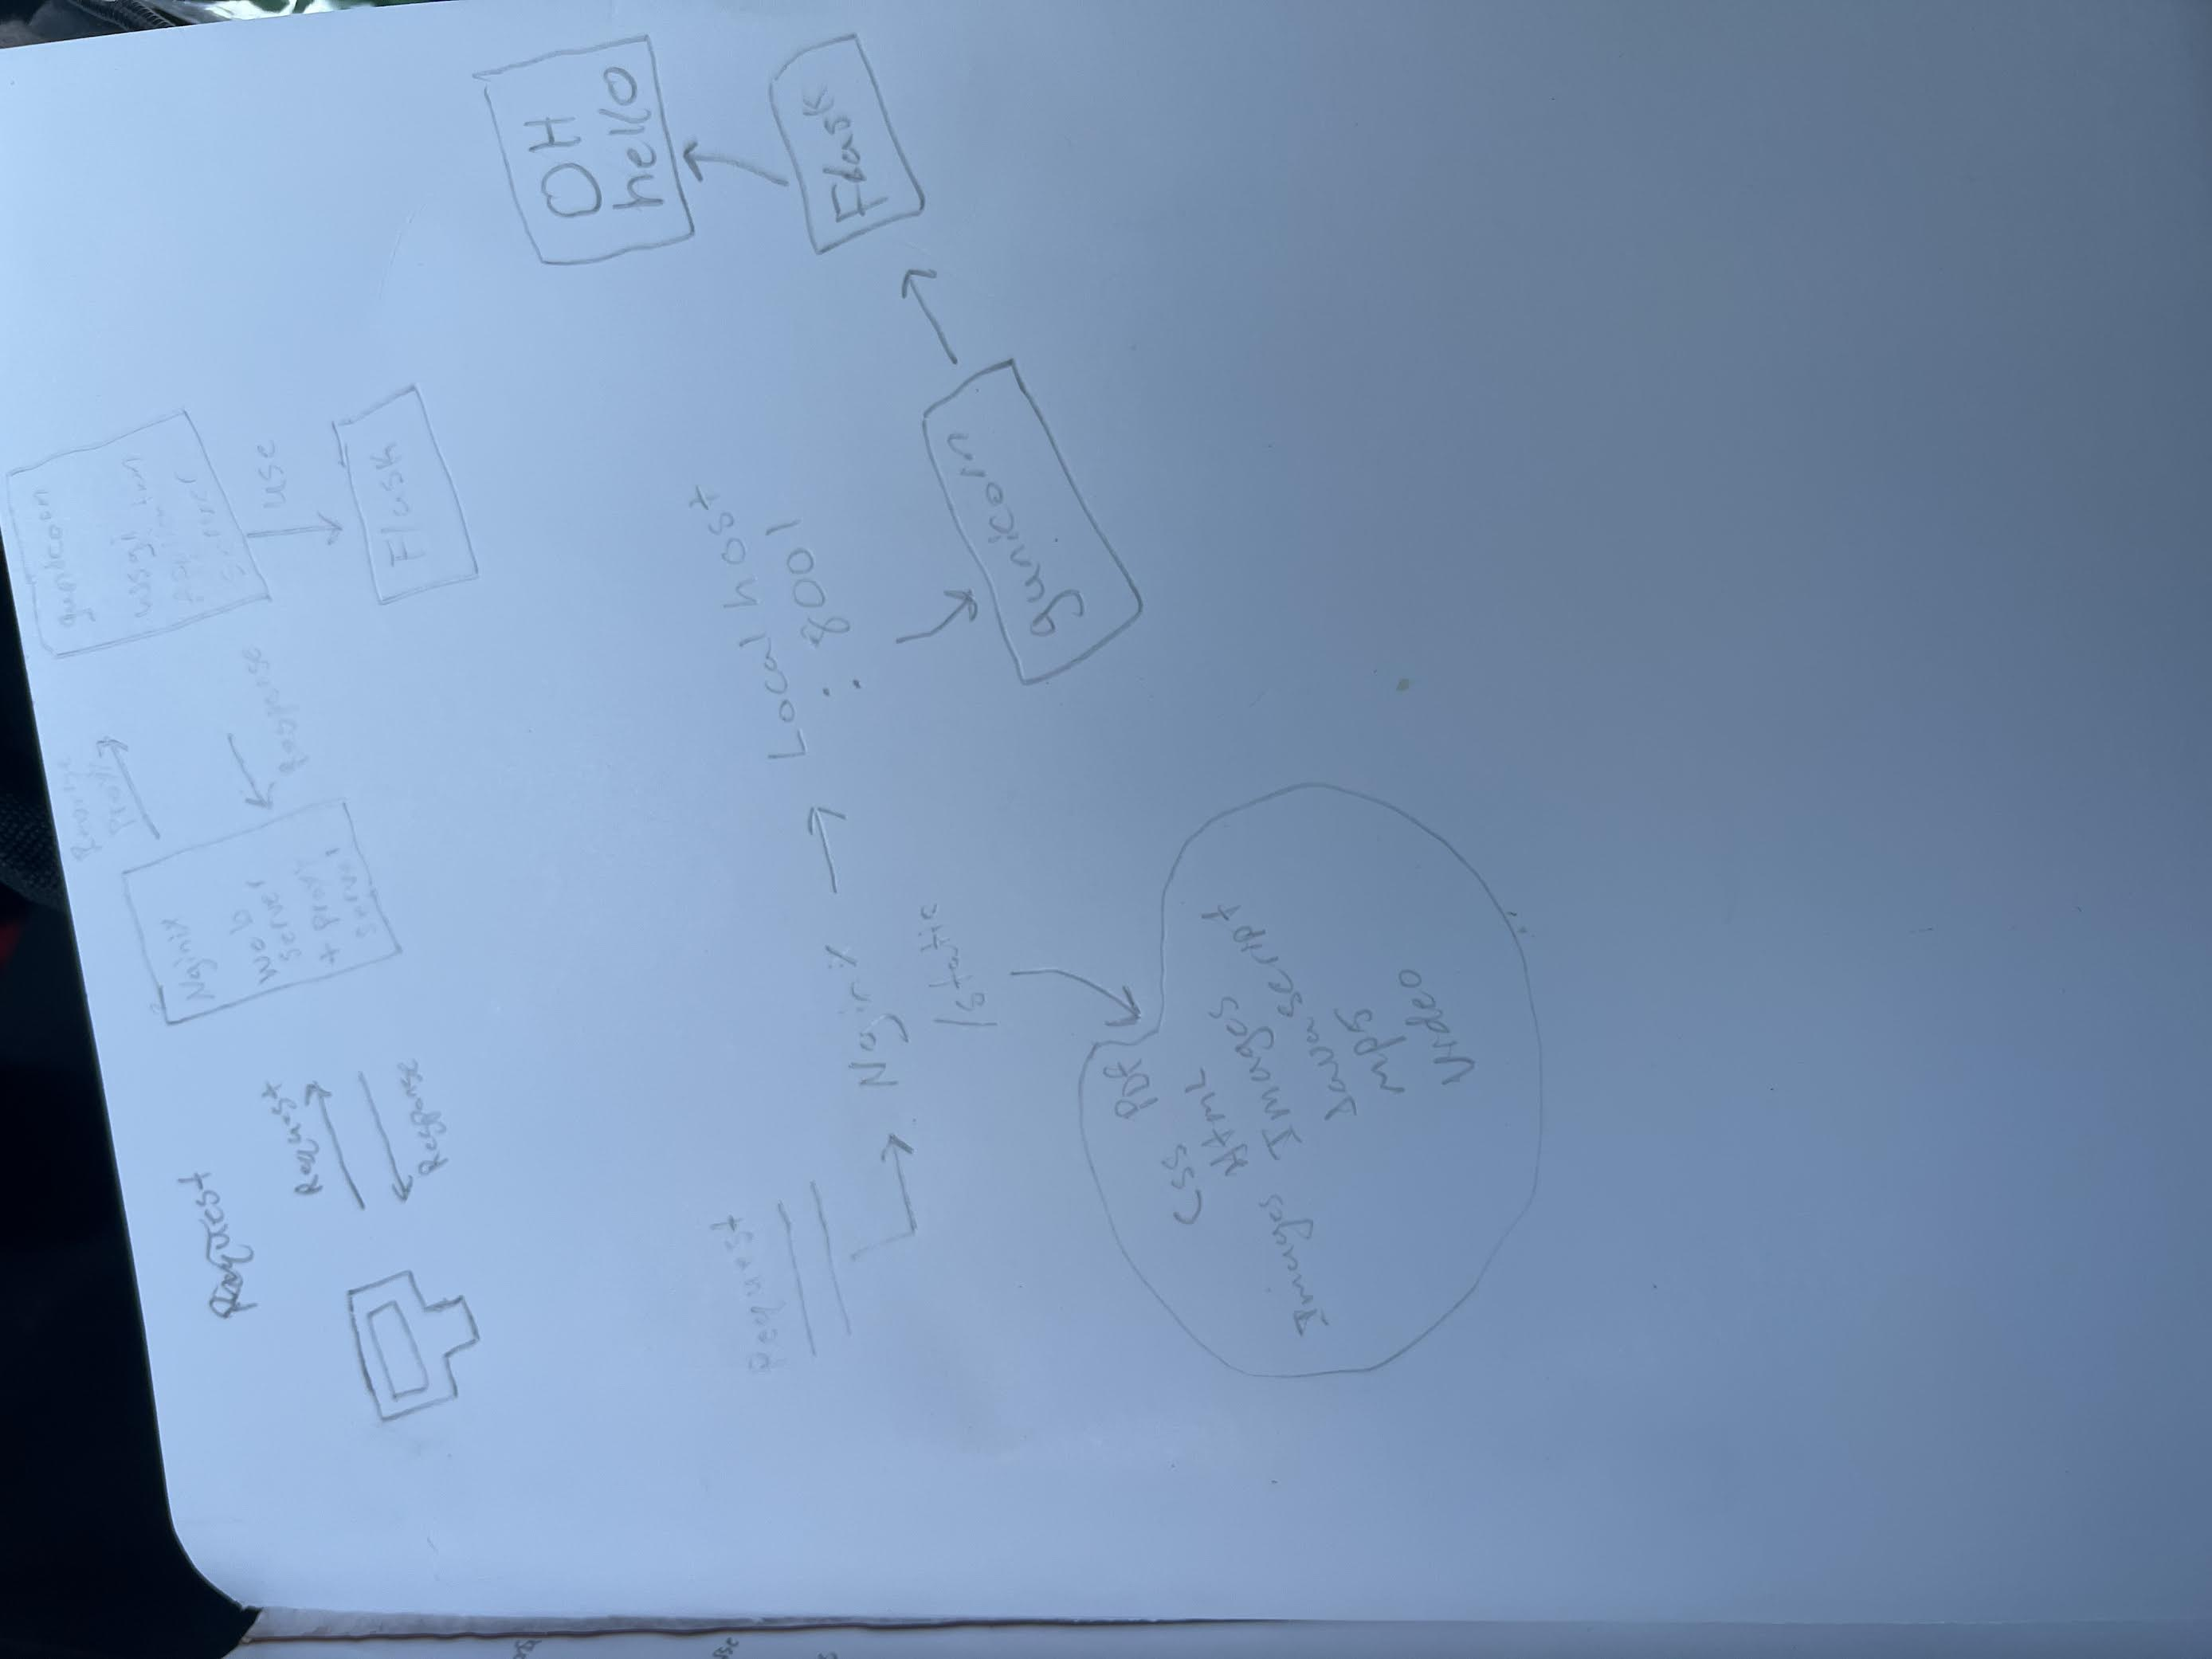 Request
Request
Response
Nginx
Web
server
+ Proxy
Server
Proxy
Response
gunicorn
wsgi
Server
use
Flask
Request
Nginx
/static
Local host
: 8001
gunicorn
Flask
OH
hello
CSS PDF
Html
Images Images
Javascript
Video